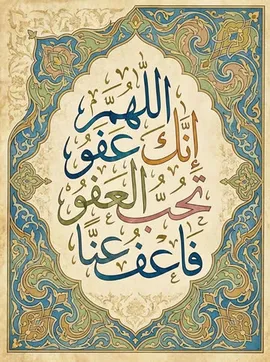 اللَّهُمَّ
إِنَّكَ عَفُوٌّ
تُحِبُّ العَفْوَ
فَاعْفُ عَنَّا